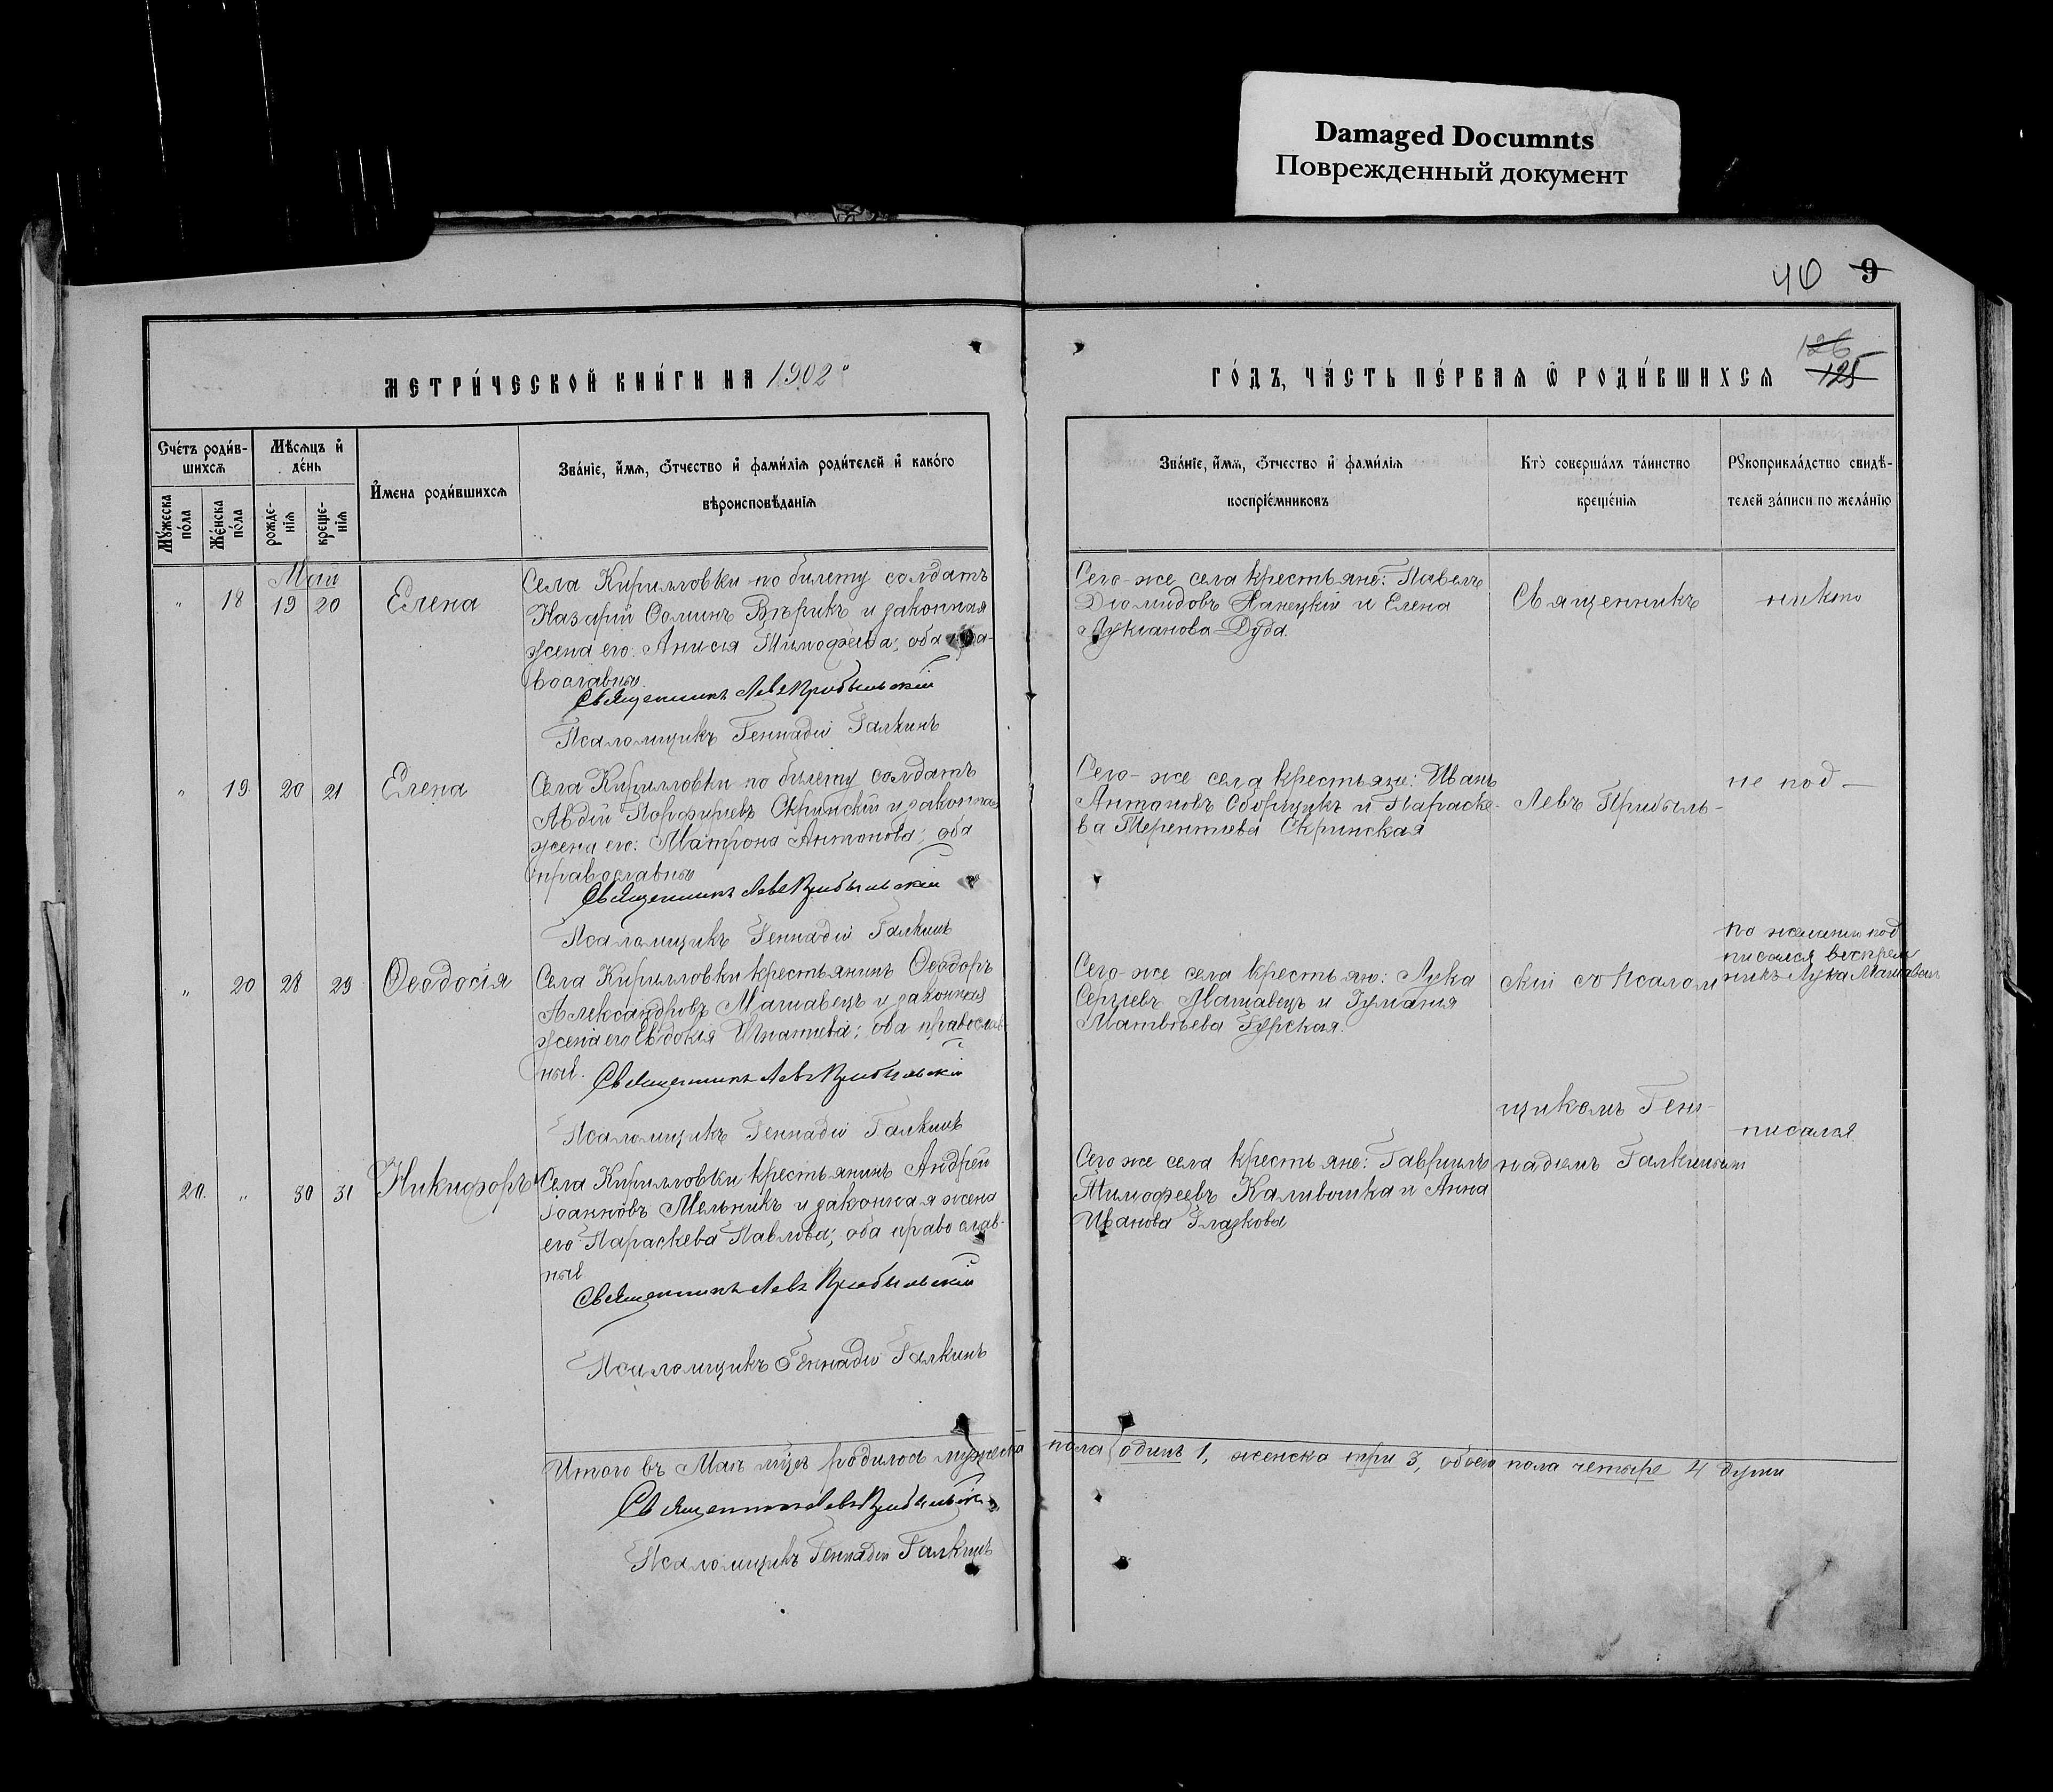 Damaged Documnts
Поврежденный документ
40 9
126
125
Метри́ческой кни́ги на 1902й
го́дъ, ча́сть пе́рвая ѡ роди́вшихся
Сче́тъ роди́в-
шихся
Му́жеска по́ла
Же́нска по́ла
Мѣ́сяцъ и҆ де́нь
рожде-
нія
креще-
нія
И҆мена роди́вшихся
Зва́ніе, и҆́мя, ѻ҆́тчество и҆ фами́лія роди́телей и҆ како́го
вѣроисповѣ́данія
Зва́ніе, и҆́мя, ѻ҆́тчество и҆ фами́лія
воспріе́мниковъ
Кто̀ соверша́лъ та́инство
креще́нія
Рꙋкоприкла́дство свидѣ́-
телей за́писи по жела́нію
Май
" 18 19 20 Елена
Села Кирилловки по билету солдатъ
Назарій Ѳоминъ Вѣрикъ и законная
жена его: Анисія Тимофеева; оба пра-
вославные.
Священникъ Левъ Прибыльскій
Псаломщикъ Геннадій Галкинъ
Сего-же села крестьяне: Павелъ
Діомидовъ и Елена
Лукіанова Дуда.
Священникъ
никто
" 19 20 21 Елена
Села Кирилловки по билету солдатъ
Авдій Порфиріевъ Скринскій и законная
жена его: Матрона Антонова; оба
православные
Священникъ Левъ Прибыльскій
Псаломщикъ Геннадій Галкинъ
Сего-же села крестьяне: Иванъ
Антоновъ и Параске-
ва Терентіева Скринская
Левъ Прибыль-
не под-
" 20 28 29 Ѳеодосія
Села Кирилловки крестьянинъ Ѳеодоръ
Александровъ Машавецъ и законная
жена его Евдокія Игнатіева; оба православ-
ные.
Священникъ Левъ Прибыльскій
Псаломщикъ Геннадій Галкинъ
Сего-же села крестьяне: Лука
Сергіевъ Машавецъ и Іуліанія
Матвѣева Гурская.
скій съ псалом
по желанію под
писался воспріем
никъ Лука Машавецъ
щикомъ Ген-
писался
20. " 30 31 Никифоръ
Села Кирилловки крестьянинъ Андрей
Іоанновъ Мельникъ и законная жена
его Параскева Павлова; оба православ-
ные
Священникъ Левъ Прибыльскій
Псаломщикъ Геннадій Галкинъ
Сего же села крестьяне: Гавріилъ
Тимофеевъ и Анна
Иванова Глазкова
надіемъ Галкинымъ
Итого въ Маѣ мцѣ родилось мужеска пола одинъ 1, женска три 3, обоего пола четыре 4 души
Священникъ Левъ Прибыльскій
Псаломщикъ Геннадій Галкинъ